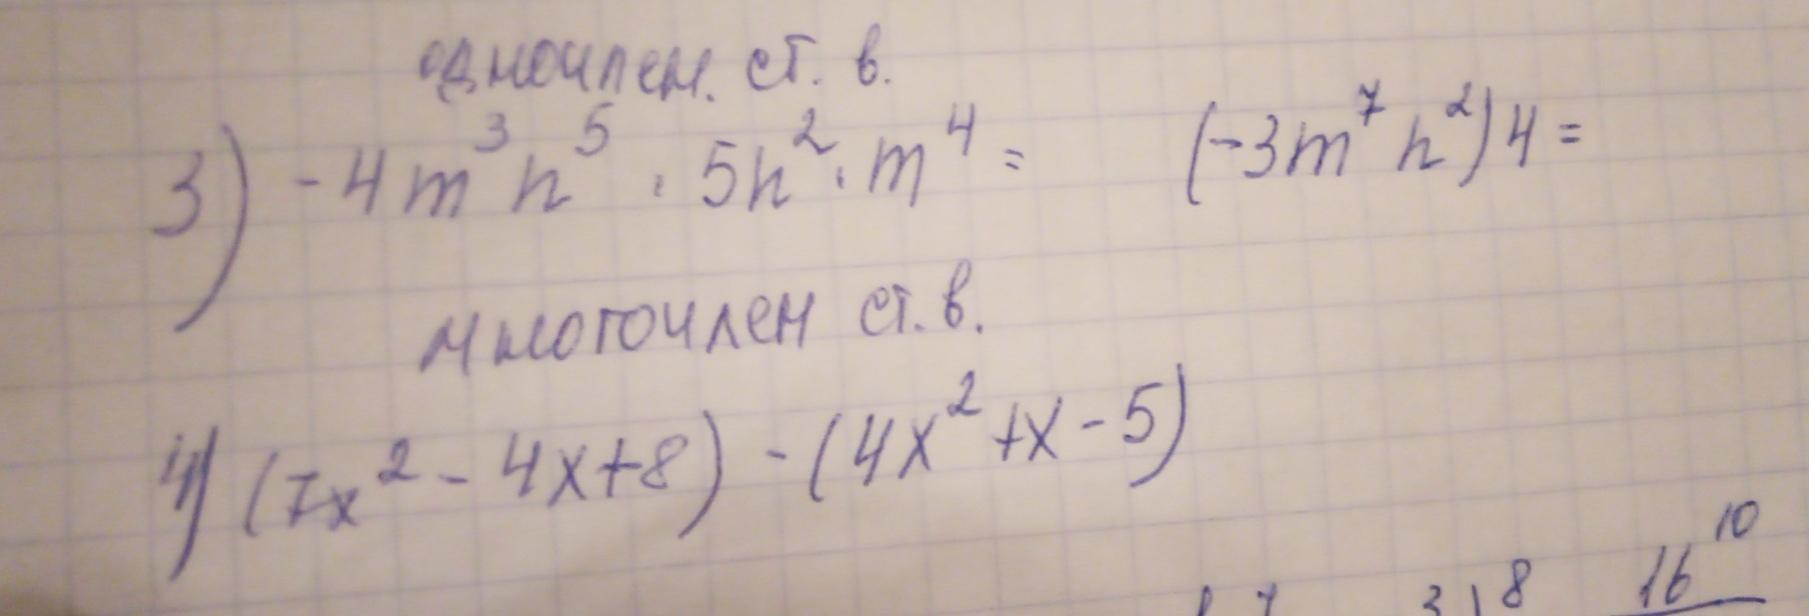 одночлен. ст. в.
3) -4m³n⁵ · 5n² · m⁴ = (-3m⁷n²)4 =
многочлен ст. в.
4) (7x² - 4x + 8) - (4x² + x - 5)
8 16¹⁰